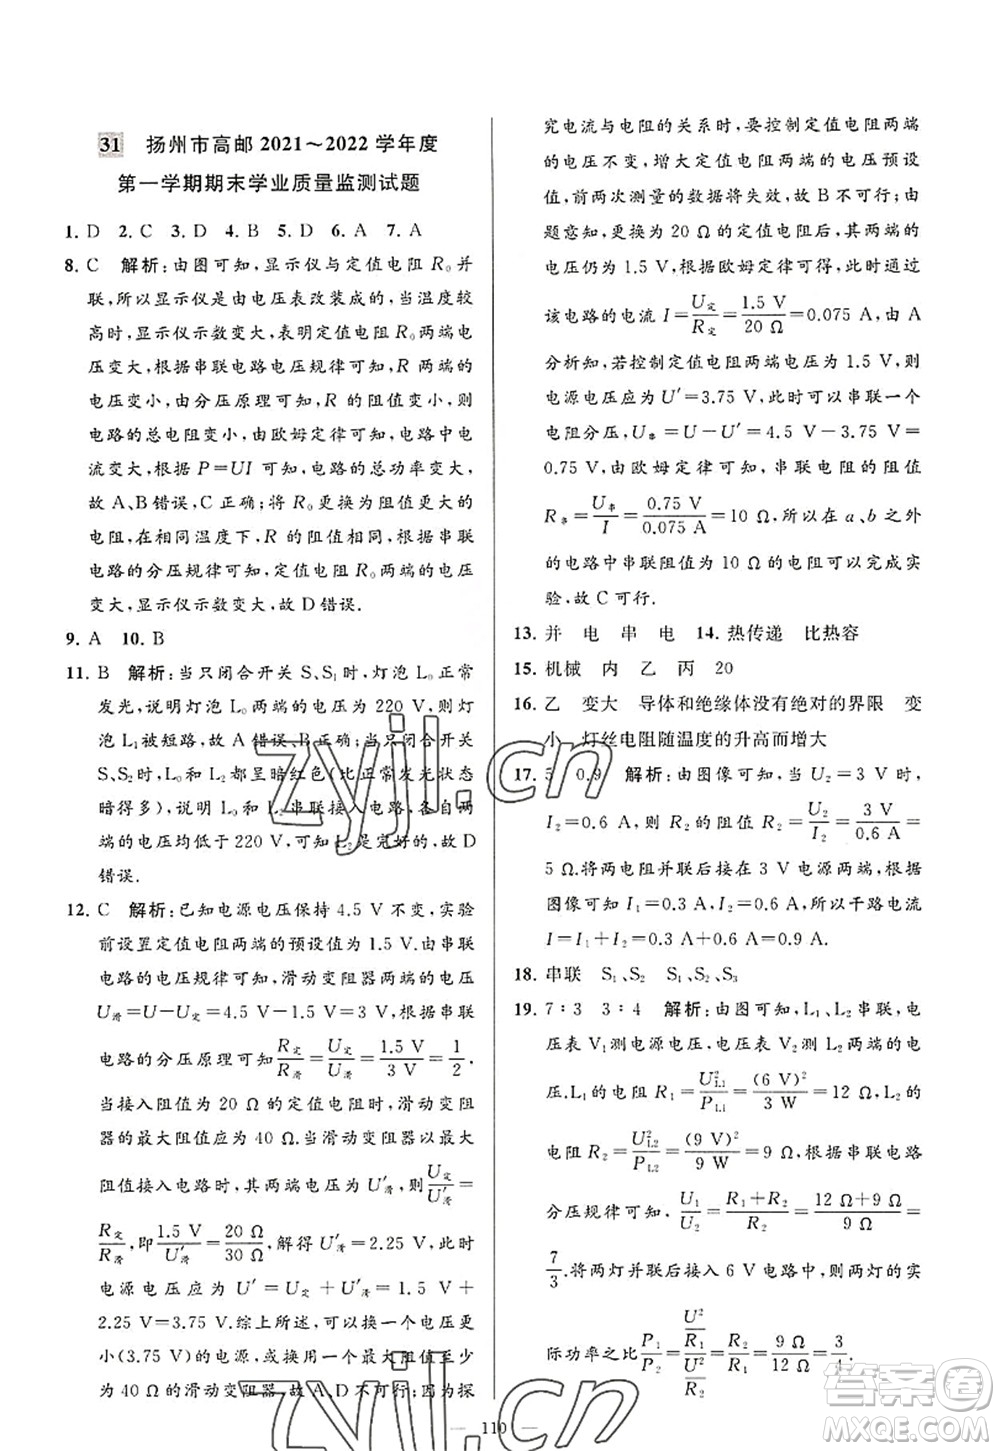 31 扬州市高邮 2021～2022 学年度
第一学期期末学业质量监测试题
1. D 2. C 3. D 4. B 5. D 6. A 7. A
8. C 解析:由图可知,显示仪与定值电阻 R₀ 并
联,所以显示仪是由电压表改装成的,当温度较
高时,显示仪示数变大,表明定值电阻 R₀ 两端电
压变大,根据串联电路电压规律可知,R 两端电
压变小,由分压原理可知,R 的阻值变小,则
电路的总电阻变小,由欧姆定律可知,电路中电
流变大,根据 P=UI 可知,电路的总功率变大,
故 A、B 错误,C 正确;将 R₀ 更换为阻值更大的
电阻,在相同温度下,R 的阻值相同,根据串联
电路的分压规律可知,定值电阻 R₀ 两端的电压
变大,显示仪示数变大,故 D 错误.
9. A 10. B
11. B 解析:当只闭合开关 S、S₁ 时,灯泡 L₀ 正常
发光,说明灯泡 L₀ 两端的电压为 220 V,则灯
泡 L₁ 被短路,故 A 错误、B 正确;当只闭合开关
S、S₂ 时,L₀ 和 L₂ 都呈暗红色(比正常发光状态
暗得多),说明 L₀ 和 L₂ 串联接入电路,各自两
端的电压均低于 220 V,可知 L₂ 是完好的,故 D
错误.
12. C 解析:已知电源电压保持 4.5 V 不变,实验
前设置定值电阻两端的预设值为 1.5 V,由串联
电路的电压规律可知,滑动变阻器两端的电压
U滑=U−U定=4.5 V−1.5 V=3 V,由串联
电路的分压原理可知 R定/R滑=U定/U滑=1.5 V/3 V=1/2.
当接入阻值为 20 Ω 的定值电阻时,滑动变阻
器的最大阻值应为 40 Ω.当滑动变阻器以最大
阻值接入电路时,其两端电压为 U′滑,则 U定/U′滑=
R定/R滑,即 1.5 V/U′滑=20 Ω/30 Ω,解得 U′滑=2.25 V,此时
电源电压应为 U′=U定+U′滑=1.5 V+
2.25 V=3.75 V.综上所述,可以换用电压更
小(3.75 V)的电源,或换用最大阻值至少
为 40 Ω 的滑动变阻器,故 A、D 不可行;因为探
究电流与电阻的关系时,要控制定值电阻两端
的电压不变,增大定值电阻两端的电压预设
值,前两次测量的数据将失效,故 B 不可行;由
题意可知,更换为 20 Ω 的定值电阻后,其两端
的电压仍为 1.5 V,根据欧姆定律可得,此时通过
该电路的电流 I=U定/R定=1.5 V/20 Ω=0.075 A,由 A
分析知,若控制定值电阻两端电压为 1.5 V,则
电源电压应为 U′=3.75 V,所以可以串联一个
电阻分压,U串=U−U′=4.5 V−3.75 V=
0.75 V,由欧姆定律可知,串联电阻的阻值
R串=U串/I=0.75 V/0.075 A=10 Ω,所以在 a、b 之外
的电路中串联阻值为 10 Ω 的电阻可以完成实
验,故 C 可行.
13. 并 电 串 电 14. 热传递 比热容
15. 机械 内 乙 丙 20
16. 乙 变大 导体和绝缘体没有绝对的界限 变
小 灯丝电阻随温度的升高而增大
17. 5 0.9 解析:由图像可知,当 U₂=3 V 时,
I₂=0.6 A,则 R₂ 的阻值 R₂=U₂/I₂=3 V/0.6 A=
5 Ω.将两电阻并联后接在 3 V 电源两端,根据
图像可知 I₁=0.3 A,I₂=0.6 A,所以干路电流
I=I₁+I₂=0.3 A+0.6 A=0.9 A.
18. 串联 S₁、S₂ S₁、S₂、S₃
19. 7∶3 3∶4 解析:由图可知,L₁、L₂ 串联,电
压表 V₁ 测电源电压,电压表 V₂ 测 L₂ 两端的电
压,L₁ 的电阻 R₁=U²L1/PL1=(6 V)²/3 W=12 Ω,L₂ 的
电阻 R₂=U²L2/PL2=(9 V)²/9 W=9 Ω,根据串联电路
分压规律可知,U₁/U₂=(R₁+R₂)/R₂=(12 Ω+9 Ω)/9 Ω=
7/3.将两灯并联后接入 6 V 电路中,两灯的实
际功率之比 P₁/P₂=(U²/R₁)/(U²/R₂)=R₂/R₁=9 Ω/12 Ω=3/4.
110
zyjl.cn
zyjl.cn
答案圈
MXQE.COM